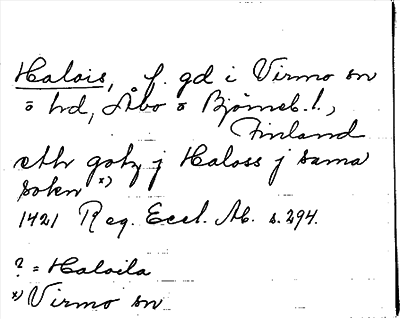 Halois, f. gd i Virmo sn
o hd, Åbo o Björneb. l.,
Finland
eth gotz j Haloss j sama
sokn x)
1421 Reg. Eccl. Ab. s. 294.
? = Haloila
x) Virmo sn